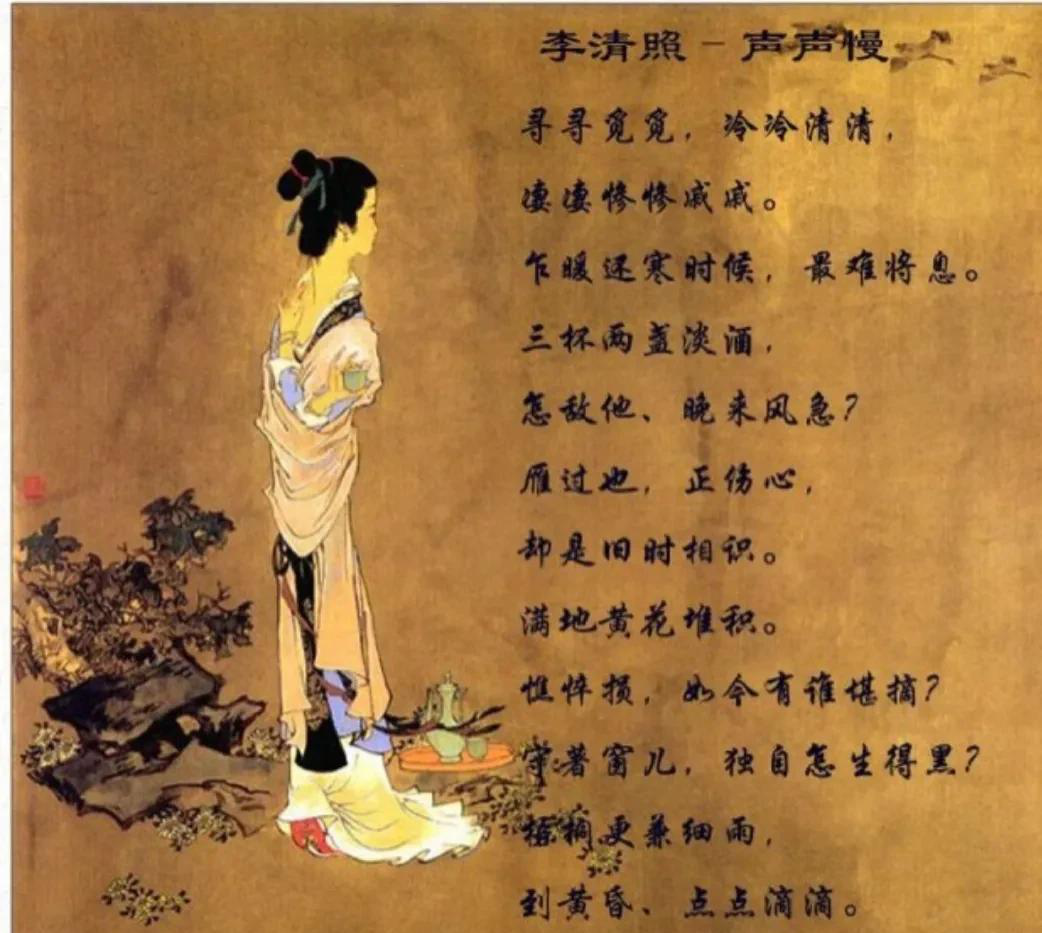 李清照－声声慢
寻寻觅觅，冷冷清清，
凄凄惨惨戚戚。
乍暖还寒时候，最难将息。
三杯两盏淡酒，
怎敌他、晚来风急？
雁过也，正伤心，
却是旧时相识。
满地黄花堆积。
憔悴损，如今有谁堪摘？
守著窗儿，独自怎生得黑？
梧桐更兼细雨，
到黄昏、点点滴滴。